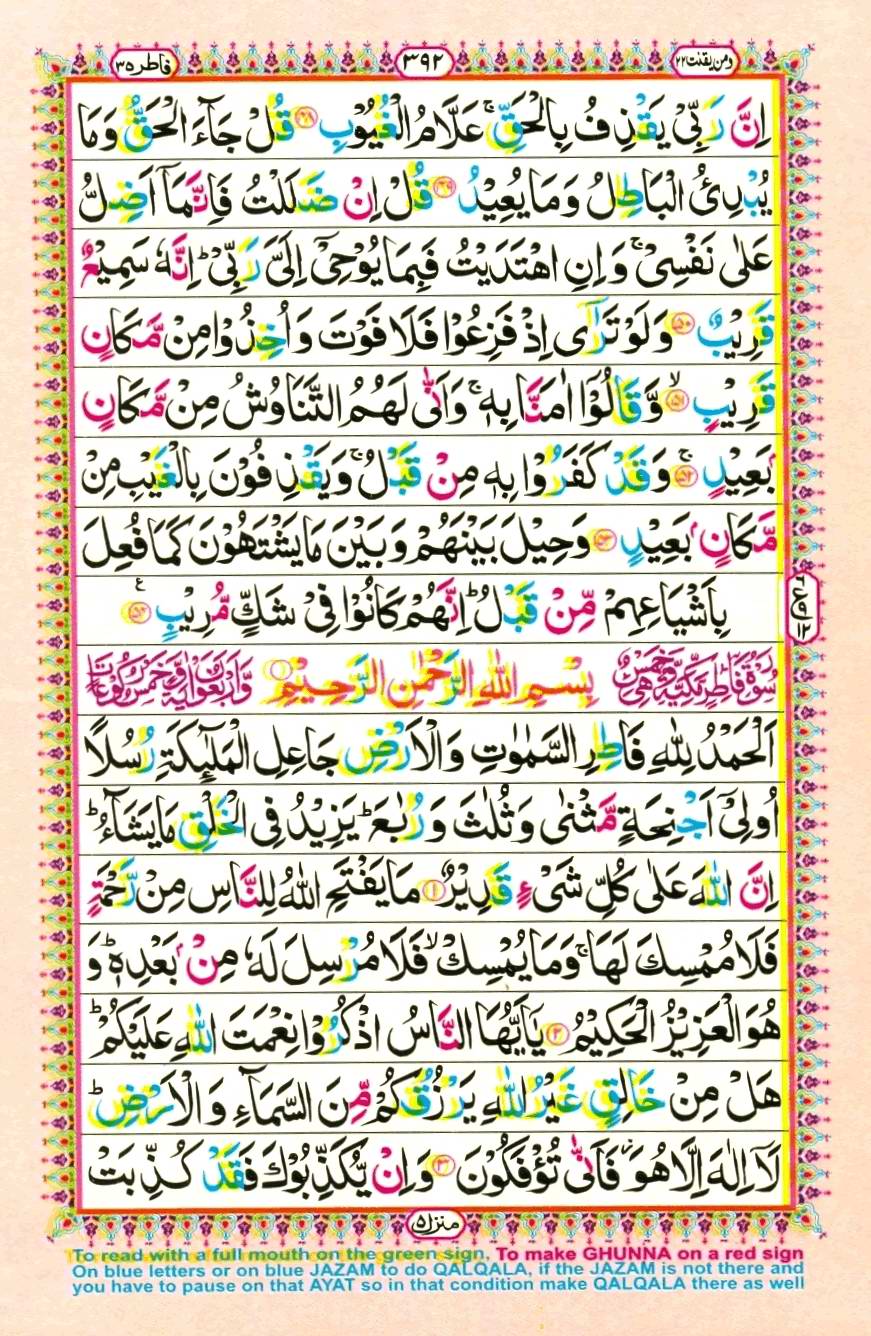 ومن یقنت ۲۲ ۳۹۲ فاطر ۳۵
اِنَّ رَبِّیْ یَقْذِفُ بِالْحَقِّ ۚ عَلَّامُ الْغُیُوْبِ ﴿۴۸﴾ قُلْ جَآءَ الْحَقُّ وَمَا
یُبْدِئُ الْبَاطِلُ وَمَا یُعِیْدُ ﴿۴۹﴾ قُلْ اِنْ ضَلَلْتُ فَاِنَّمَاۤ اَضِلُّ
عَلٰی نَفْسِیْ ۚ وَاِنِ اهْتَدَیْتُ فَبِمَا یُوْحِیْۤ اِلَیَّ رَبِّیْ ؕ اِنَّهٗ سَمِیْعٌ
قَرِیْبٌ ﴿۵۰﴾ وَلَوْ تَرٰۤی اِذْ فَزِعُوْا فَلَا فَوْتَ وَاُخِذُوْا مِنْ مَّكَانٍ
قَرِیْبٍ ﴿۵۱﴾ ۙ وَّقَالُوْۤا اٰمَنَّا بِهٖ ۚ وَاَنّٰی لَهُمُ التَّنَاوُشُ مِنْ مَّكَانٍۭ
بَعِیْدٍ ﴿۵۲﴾ ۚ وَقَدْ كَفَرُوْا بِهٖ مِنْ قَبْلُ ۚ وَیَقْذِفُوْنَ بِالْغَیْبِ مِنْ
مَّكَانٍۭ بَعِیْدٍ ﴿۵۳﴾ وَحِیْلَ بَیْنَهُمْ وَبَیْنَ مَا یَشْتَهُوْنَ كَمَا فُعِلَ
بِاَشْیَاعِهِمْ مِّنْ قَبْلُ ؕ اِنَّهُمْ كَانُوْا فِیْ شَكٍّ مُّرِیْبٍ ﴿۵۴﴾ ع
سُوْرَةُ فَاطِرٍ مَكِّیَّةٌ وَّهِیَ خَمْسٌ بِسْمِ اللّٰهِ الرَّحْمٰنِ الرَّحِیْمِ وَّاَرْبَعُوْنَ اٰیَةً وَّخَمْسُ رُكُوْعَاتٍ
اَلْحَمْدُ لِلّٰهِ فَاطِرِ السَّمٰوٰتِ وَالْاَرْضِ جَاعِلِ الْمَلٰٓئِكَةِ رُسُلًا
اُولِیْۤ اَجْنِحَةٍ مَّثْنٰی وَثُلٰثَ وَرُبٰعَ ؕ یَزِیْدُ فِی الْخَلْقِ مَا یَشَآءُ ؕ
اِنَّ اللّٰهَ عَلٰی كُلِّ شَیْءٍ قَدِیْرٌ ﴿۱﴾ مَا یَفْتَحِ اللّٰهُ لِلنَّاسِ مِنْ رَّحْمَةٍ
فَلَا مُمْسِكَ لَهَا ۚ وَمَا یُمْسِكْ ۙ فَلَا مُرْسِلَ لَهٗ مِنْۢ بَعْدِهٖ ؕ وَ
هُوَ الْعَزِیْزُ الْحَكِیْمُ ﴿۲﴾ یٰۤاَیُّهَا النَّاسُ اذْكُرُوْا نِعْمَتَ اللّٰهِ عَلَیْكُمْ ؕ
هَلْ مِنْ خَالِقٍ غَیْرُ اللّٰهِ یَرْزُقُكُمْ مِّنَ السَّمَآءِ وَالْاَرْضِ ؕ
لَاۤ اِلٰهَ اِلَّا هُوَ ۖ فَاَنّٰی تُؤْفَكُوْنَ ﴿۳﴾ وَاِنْ یُّكَذِّبُوْكَ فَقَدْ كُذِّبَتْ
منزل ۵
To read with a full mouth on the green sign, To make GHUNNA on a red sign
On blue letters or on blue JAZAM to do QALQALA, if the JAZAM is not there and
you have to pause on that AYAT so in that condition make QALQALA there as well